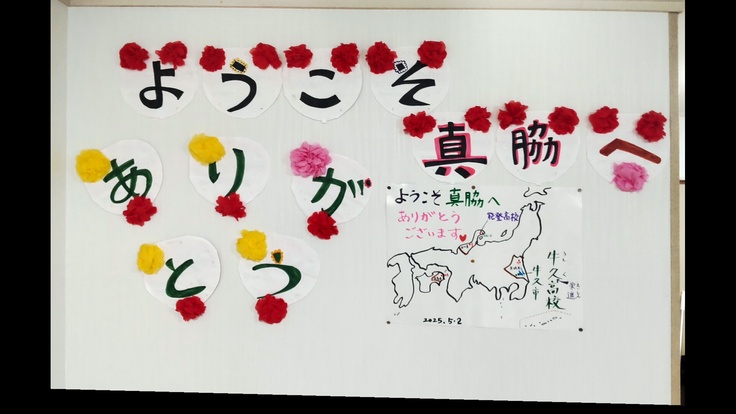 ようこそ
真脇へ
ありが
とう
ようこそ 真脇へ
ありがとう
ございます
能登高校
牛久高校
牛久市
2025.5.2